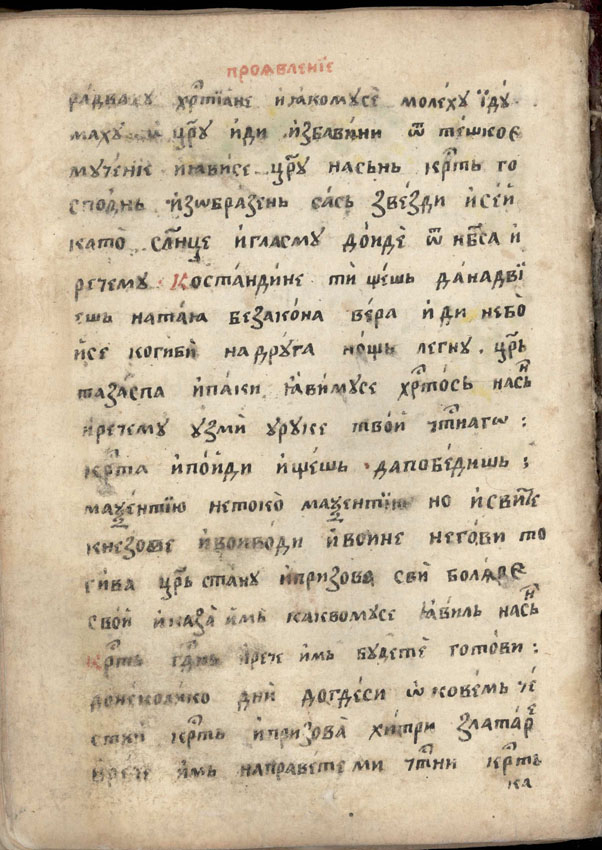 проꙗвленїе
радваху хрⷭ҇тїане и҆ ꙗ҆комусѐ молеху їду
маху цр҃у и҆ди и҆збавини ѿ тешкое
мученїе ꙗ҆висе цр҃у насьнь крⷭ҇ть го
сподⷩь и҆зѡбразень сась звезди и҆сеи
като̀ сл҃нце и҆гласму до́идѐ ѿ нб҃са и҆
речему Коста́ндине ти щешь да́надвї
ешь ната́ꙗ безако́на вера и҆ди небо̀
и҆се когиби̇̀ надруга но́шь легну . цр҃ь
тазаспа и҆паки ꙗ҆вимусе хрⷭ҇то́сь насьⷩ
и҆речему узмѝ уруке тво́и чтⷭ҇наго :
крⷭ҇та и҆по́иди и҆щешь дапобе́дишь ;
маѯентїю нетоко̀ маѯентїю но и҆сви́те
кнезове и҆во́иво́ди и҆во́ине него́ви то
гива цр҃ь стану и҆призова свѝ болꙗре
сво́и и҆каза̀ и҆мь каквомусе ꙗ҆виль насьⷩ
крⷭ҇ть гдⷭ҇нь и҆рече и҆мь буде́те̇ готови :
донеколико днѝ догдеси ѡ҆ковемь че
стни крⷭ҇ть и҆призова̀ хитри златареⷨ
и҆рече и҆мь направете ми чтⷭ҇ни крⷭ҇ть
ка